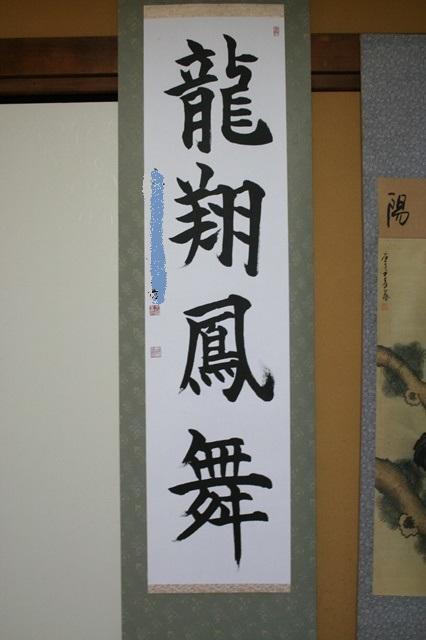 龍翔鳳舞
陽